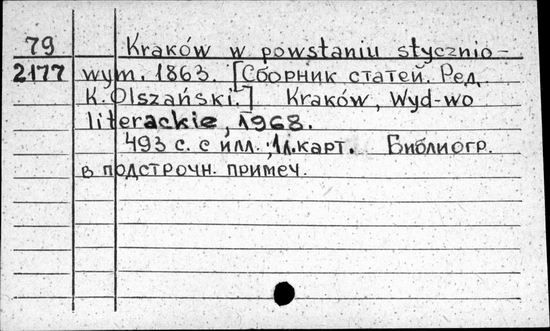 79 Kraków w powstaniu stycznio-
2177 wym. 1863. [Сборник статей. Ред.
K. Olszański.] Kraków, Wyd-wo
literackie, 1968.
493 с. с илл.; 1 л. карт. Библиогр.
в подстрочн. примеч.